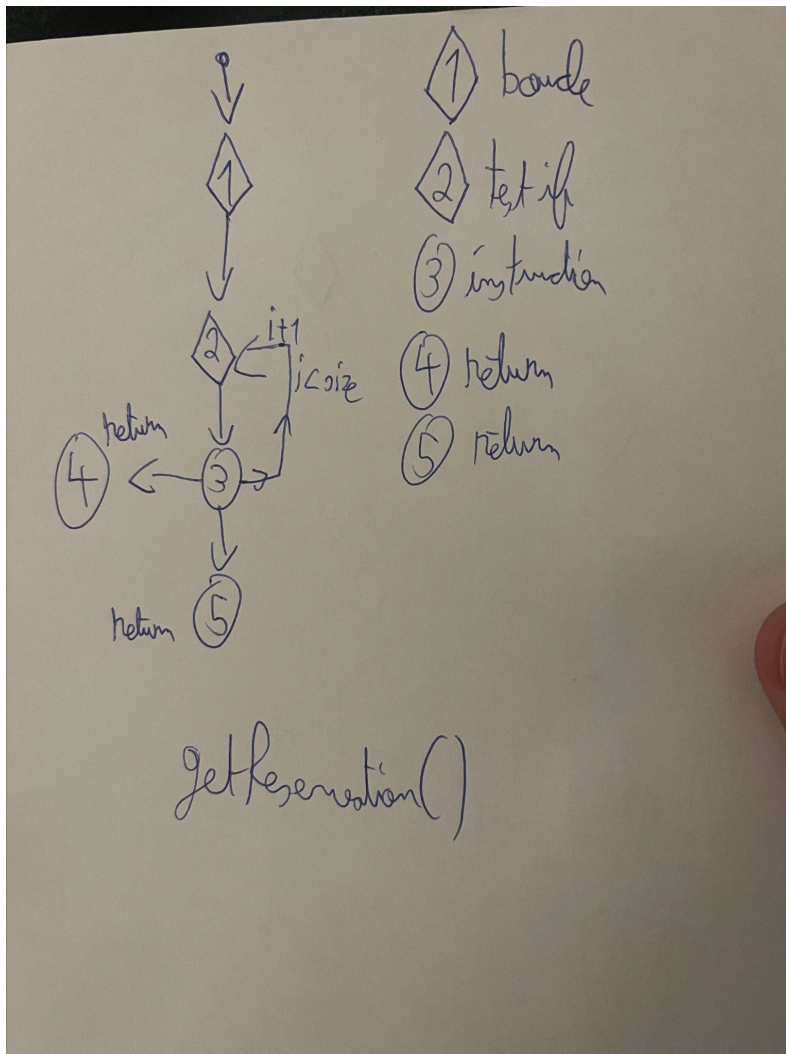 1
2
i+1
i<size
return
4
3
return
5
1 boucle
2 test if
3 instruction
4 return
5 return
getReservation()